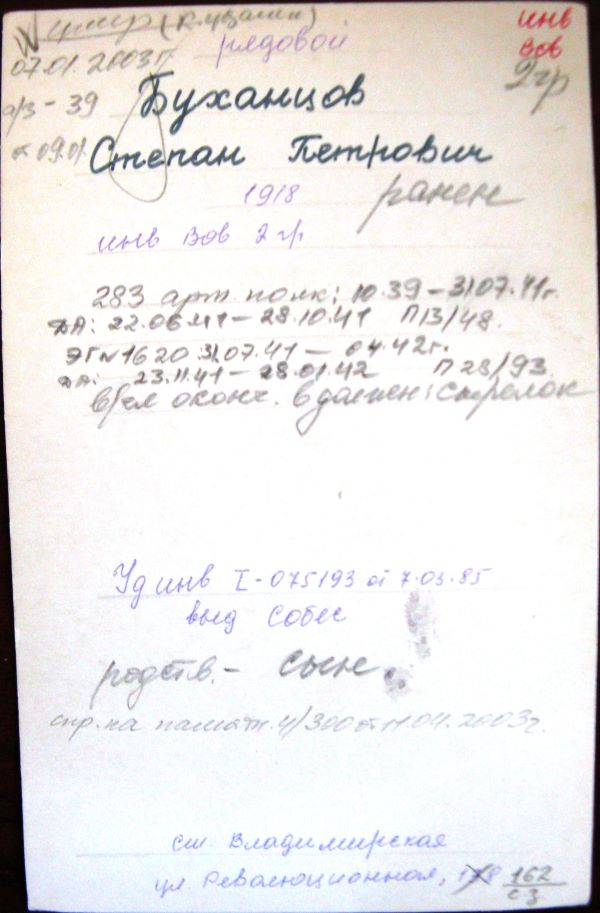 умер
инв
ВОВ
2 гр
рядовой
07.01.2003г
а/з - 39
от 09.01.
Буханцов
Степан Петрович
1918
ранен
инв ВОВ 2 гр
283 арт. полк: 10.39 – 31.07.41г.
ДА: 22.06.41 – 28.10.41 П 13/48.
ЭГ № 1620 31.07.41 – 04.42г.
ДА: 23.11.41 – 28.01.42 П 28/93
в/сл оконч. в должен: стрелок
Уд инв I-075193 от 7.03.85
выд Собес
родств. - сын.
спр. на памятн. 4/300 от 11.04.2003г.
ст. Владимирская
ул. Революционная, 162